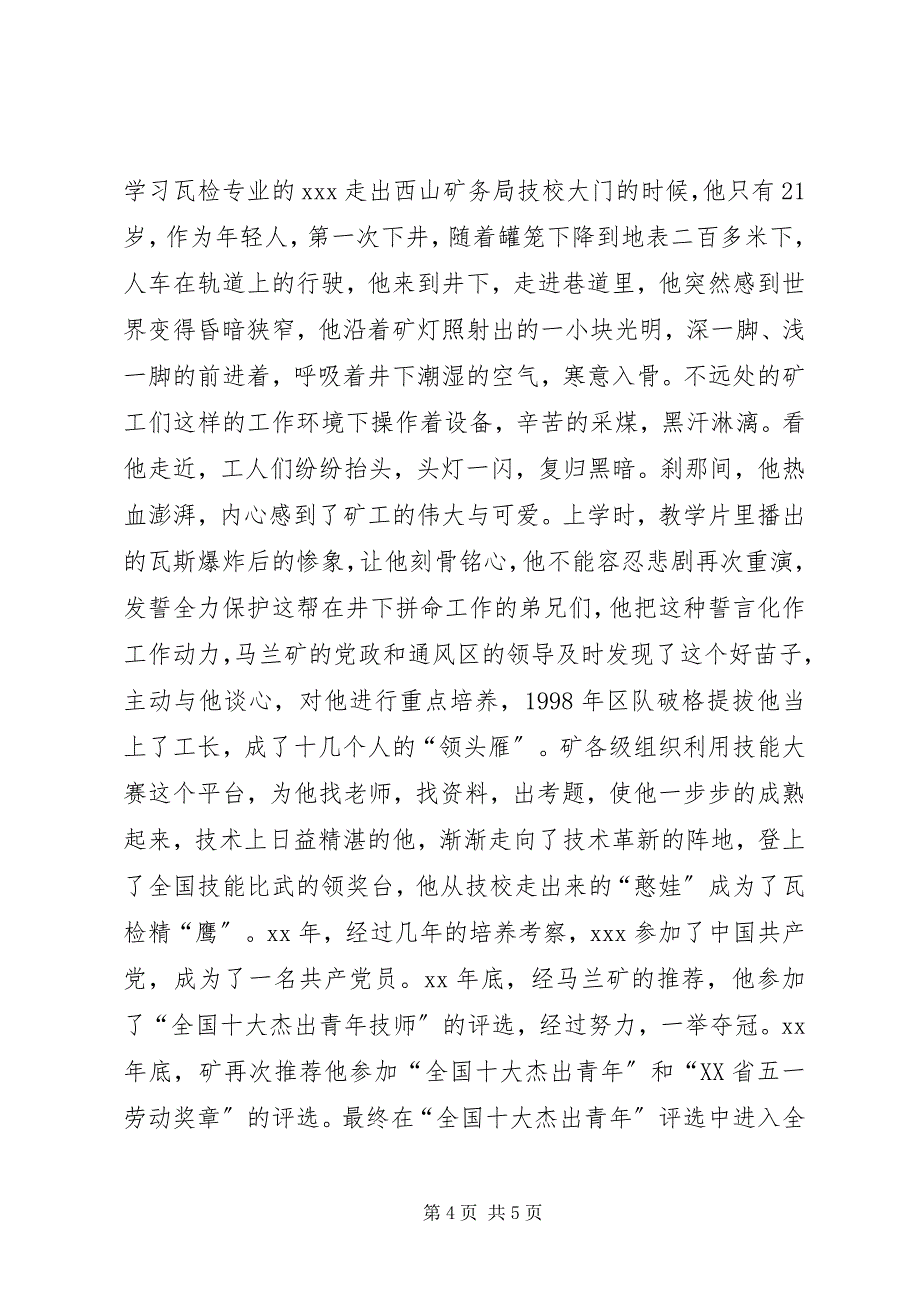 学习瓦检专业的 xxx 走出西山矿务局技校大门的时候，他只有 21
岁，作为年轻人，第一次下井，随着罐笼下降到地表二百多米下，
人车在轨道上的行驶，他来到井下，走进巷道里，他突然感到世
界变得昏暗狭窄，他沿着矿灯照射出的一小块光明，深一脚、浅
一脚的前进着，呼吸着井下潮湿的空气，寒意入骨。不远处的矿
工们这样的工作环境下操作着设备，辛苦的采煤，黑汗淋漓。看
他走近，工人们纷纷抬头，头灯一闪，复归黑暗。刹那间，他热
血澎湃，内心感到了矿工的伟大与可爱。上学时，教学片里播出
的瓦斯爆炸后的惨象，让他刻骨铭心，他不能容忍悲剧再次重演，
发誓全力保护这帮在井下拼命工作的弟兄们，他把这种誓言化作
工作动力，马兰矿的党政和通风区的领导及时发现了这个好苗子，
主动与他谈心，对他进行重点培养，1998 年区队破格提拔他当
上了工长，成了十几个人的“领头雁〞。矿各级组织利用技能大
赛这个平台，为他找老师，找资料，出考题，使他一步步的成熟
起来，技术上日益精湛的他，渐渐走向了技术革新的阵地，登上
了全国技能比武的领奖台，他从技校走出来的“憨娃〞成为了瓦
检精“鹰〞。xx 年，经过几年的培养考察，xxx 参加了中国共产
党，成为了一名共产党员。xx 年底，经马兰矿的推荐，他参加
了“全国十大杰出青年技师〞的评选，经过努力，一举夺冠。xx
年底，矿再次推荐他参加“全国十大杰出青年〞和“XX 省五一
劳动奖章〞的评选。最终在“全国十大杰出青年〞评选中进入全
第 4 页 共 5 页